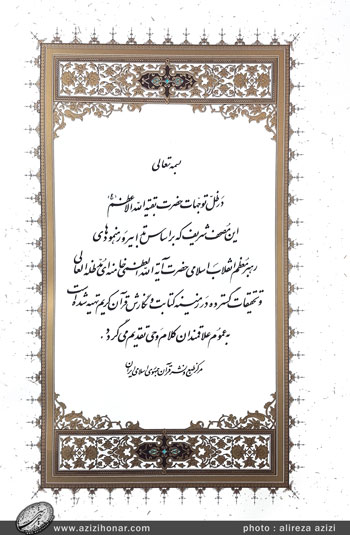 بسمه تعالی
در ظلّ توجهات حضرت بقیة الله الاعظم (عج)
این مصحف شریف که بر اساس تدابیر و رهنمودهای
رهبر معظم انقلاب اسلامی حضرت آیة الله العظمی خامنه‌ای مدظله العالی
و تحقیقات گسترده در زمینه کتابت و نگارش قرآن کریم تهیه شده است
به عموم علاقمندان کلام وحی تقدیم می گردد.
مرکز طبع و نشر قرآن جمهوری اسلامی ایران
www.azizihonar.com
photo : alireza azizi